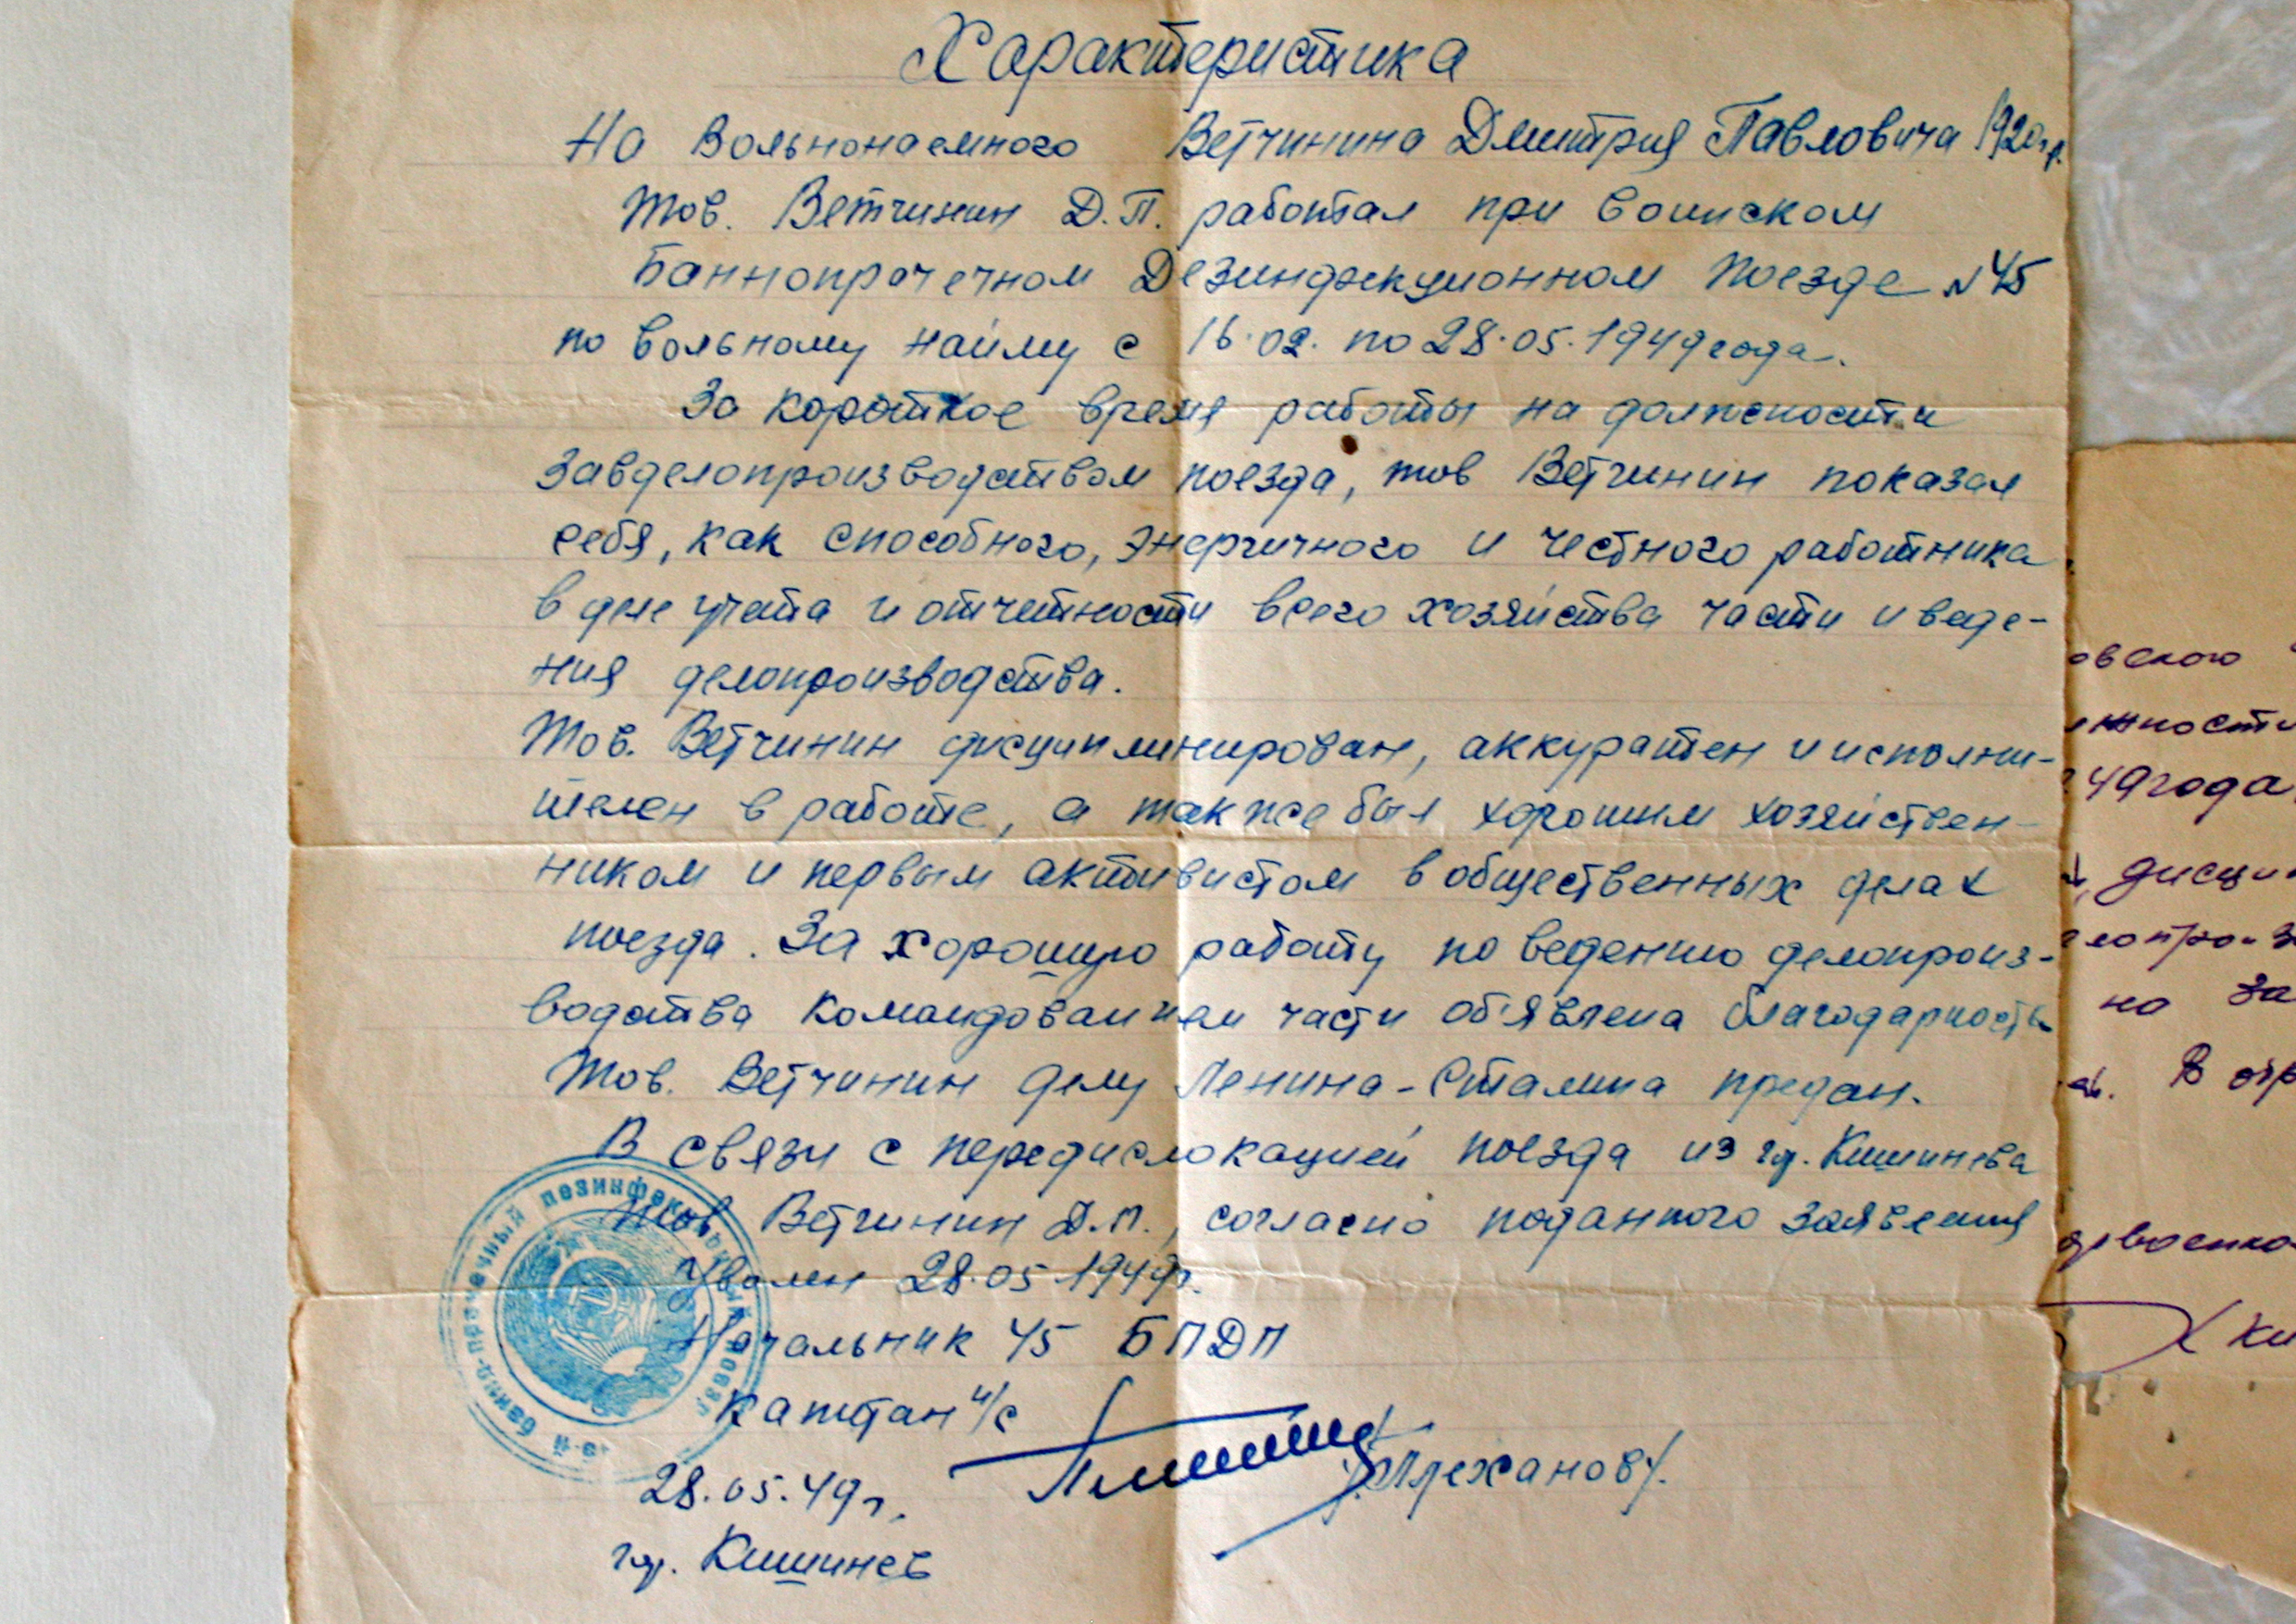 Характеристика
На Вольнонаемного Ветчинина Дмитрия Павловича 1920г.р.
Тов. Ветчинин Д.П. работал при воинском
Баннопрачечном Дезинфекционном Поезде № 45
по вольному найму с 16.02. по 28.05.1949 года.
За короткое время работы на должности
Завделопроизводством поезда, тов Ветчинин показал
себя, как способного, энергичного и честного работника
в деле учета и отчетности всего хозяйства части и веде-
ния делопроизводства.
Тов. Ветчинин дисциплинирован, аккуратен и исполни-
телен в работе, а также был хорошим хозяйствен-
ником и первым активистом в общественных делах
поезда. За хорошую работу по ведению делопроиз-
водства командованием части об'явлена благодарность
Тов. Ветчинин делу Ленина-Сталина предан.
В связи с передислокацией поезда из гор. Кишинева
тов Ветчинин Д.П., согласно поданного заявления
Уволен 28.05.1949г.
Начальник 45 БПДП
Капитан и/с
/Плеханов/.
28.05.49г.
гор. Кишинев
банно-прачечный дезинфекционный поезд
овского
жности
49 года
дисци
на За
В